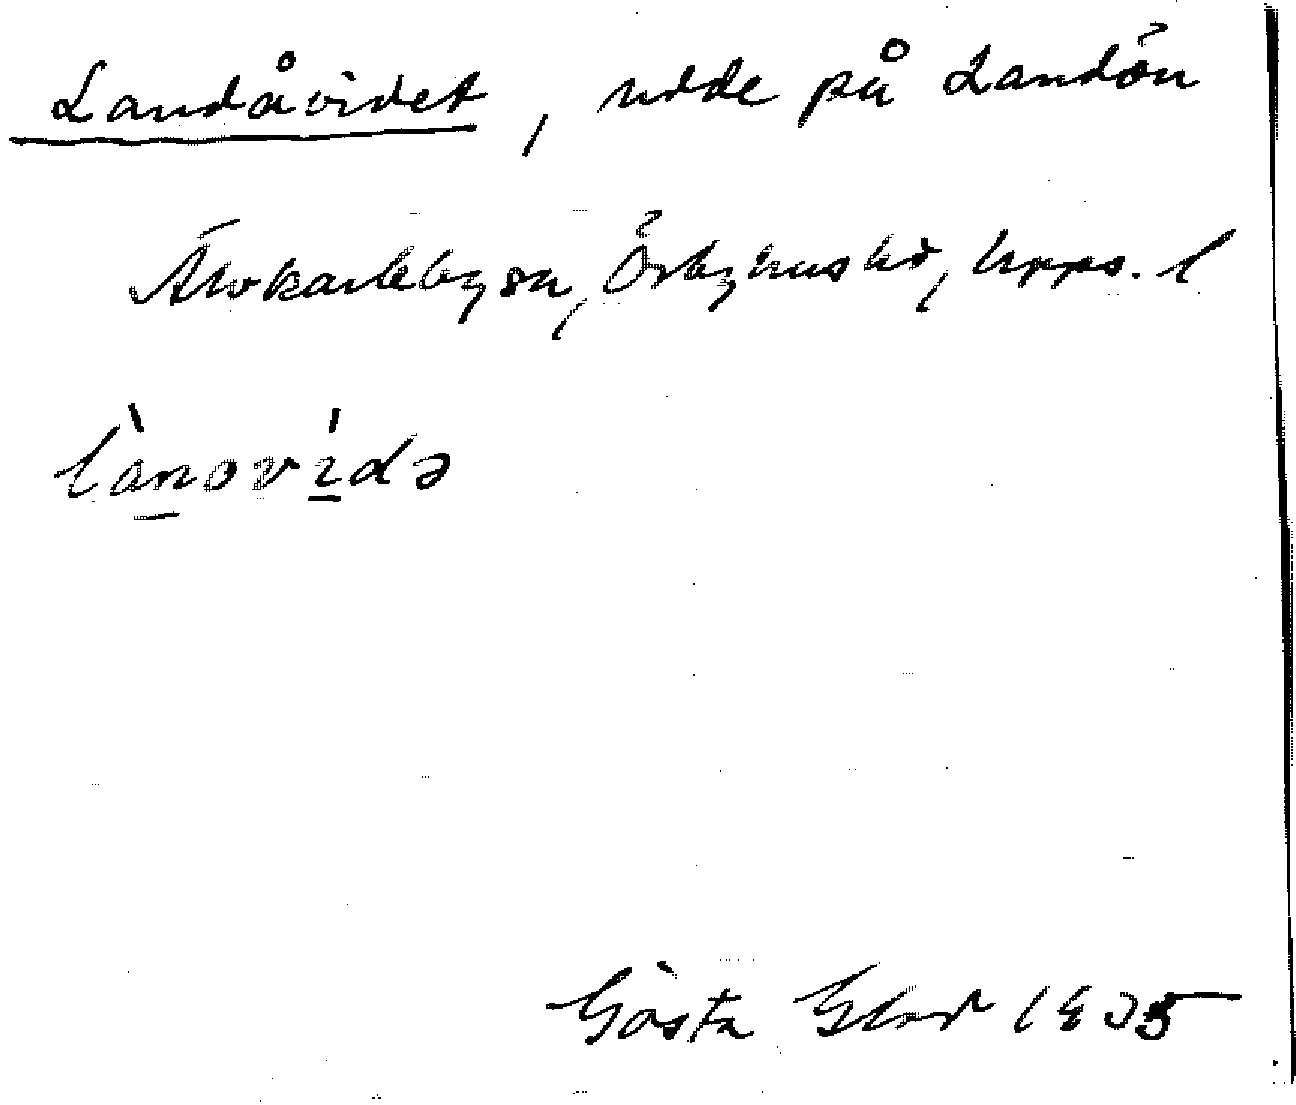 Landåvidet, udde på Landön
Älvkarleby sn, Örbyhus hd, Upps. l
lànovídə
Gösta